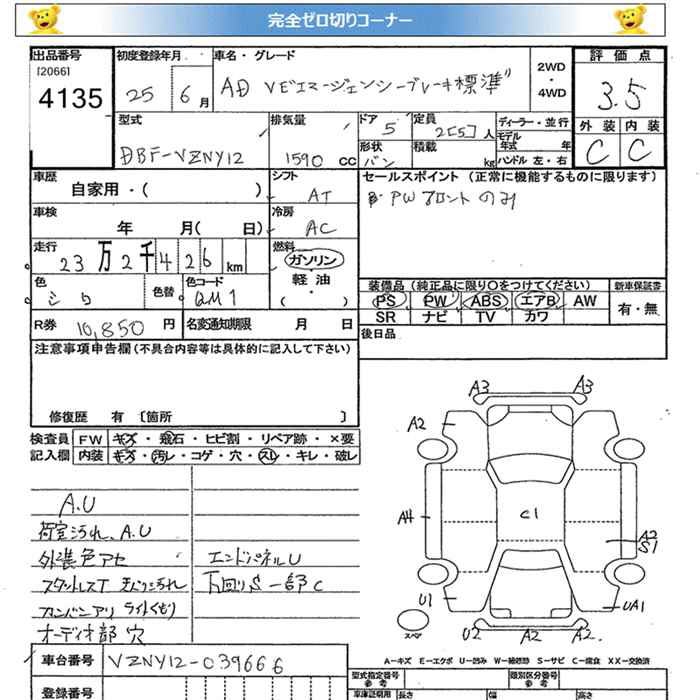 完全ゼロ切りコーナー
出品番号 初度登録年月 車名・グレード 2WD・4WD 評価点
[2066]
4135 25 6月 AD VEエマージェンシーブレーキ標準" 3.5
型式 排気量 ドア 5 定員 2[5]人 ディーラー・並行 外装 内装
モデル年式 年
DBF-VZNY12 1590 cc 形状 バン 積載 kg ハンドル 左・右 C C
車歴 自家用・( ) シフト AT セールスポイント(正常に機能するものに限ります)
PWフロントのみ
車検 年 月( 日) 冷房 AC
走行 23万2千426km 燃料 ガソリン
軽油・( )
色 シロ 色替 色コード QM1
装備品(純正品に限り○をつけてください) 新車保証書
PS PW ABS エアB AW 有・無
SR ナビ TV カワ
R券 10,850円 名変通知期限 月 日 後日品
注意事項申告欄(不具合内容等は具体的に記入して下さい)
修復歴 有 〔箇所 〕
検査員 FW キズ・飛石・ヒビ割・リペア跡・×要
記入欄 内装 キズ・汚レ・コゲ・穴・スレ・キレ・破レ
A.U
荷室汚れ、A.U
外装色アセ エンドパネルU
天張り汚れ 下回りS 一部C
カンバンアリ ライトくもり
オーディオ部 穴
A3 A3
A2
C1
A4 A2
S1
U1 UA1
スペア U2 A2 A2
車台番号 VZNY12-039666
A-キズ E-エクボ U-凹み W-補修跡 S-サビ C-腐食 XX-交換済
登録番号 型式指定番号 参考 類別区分番号 参考
車庫証明用 長さ 幅 高さ